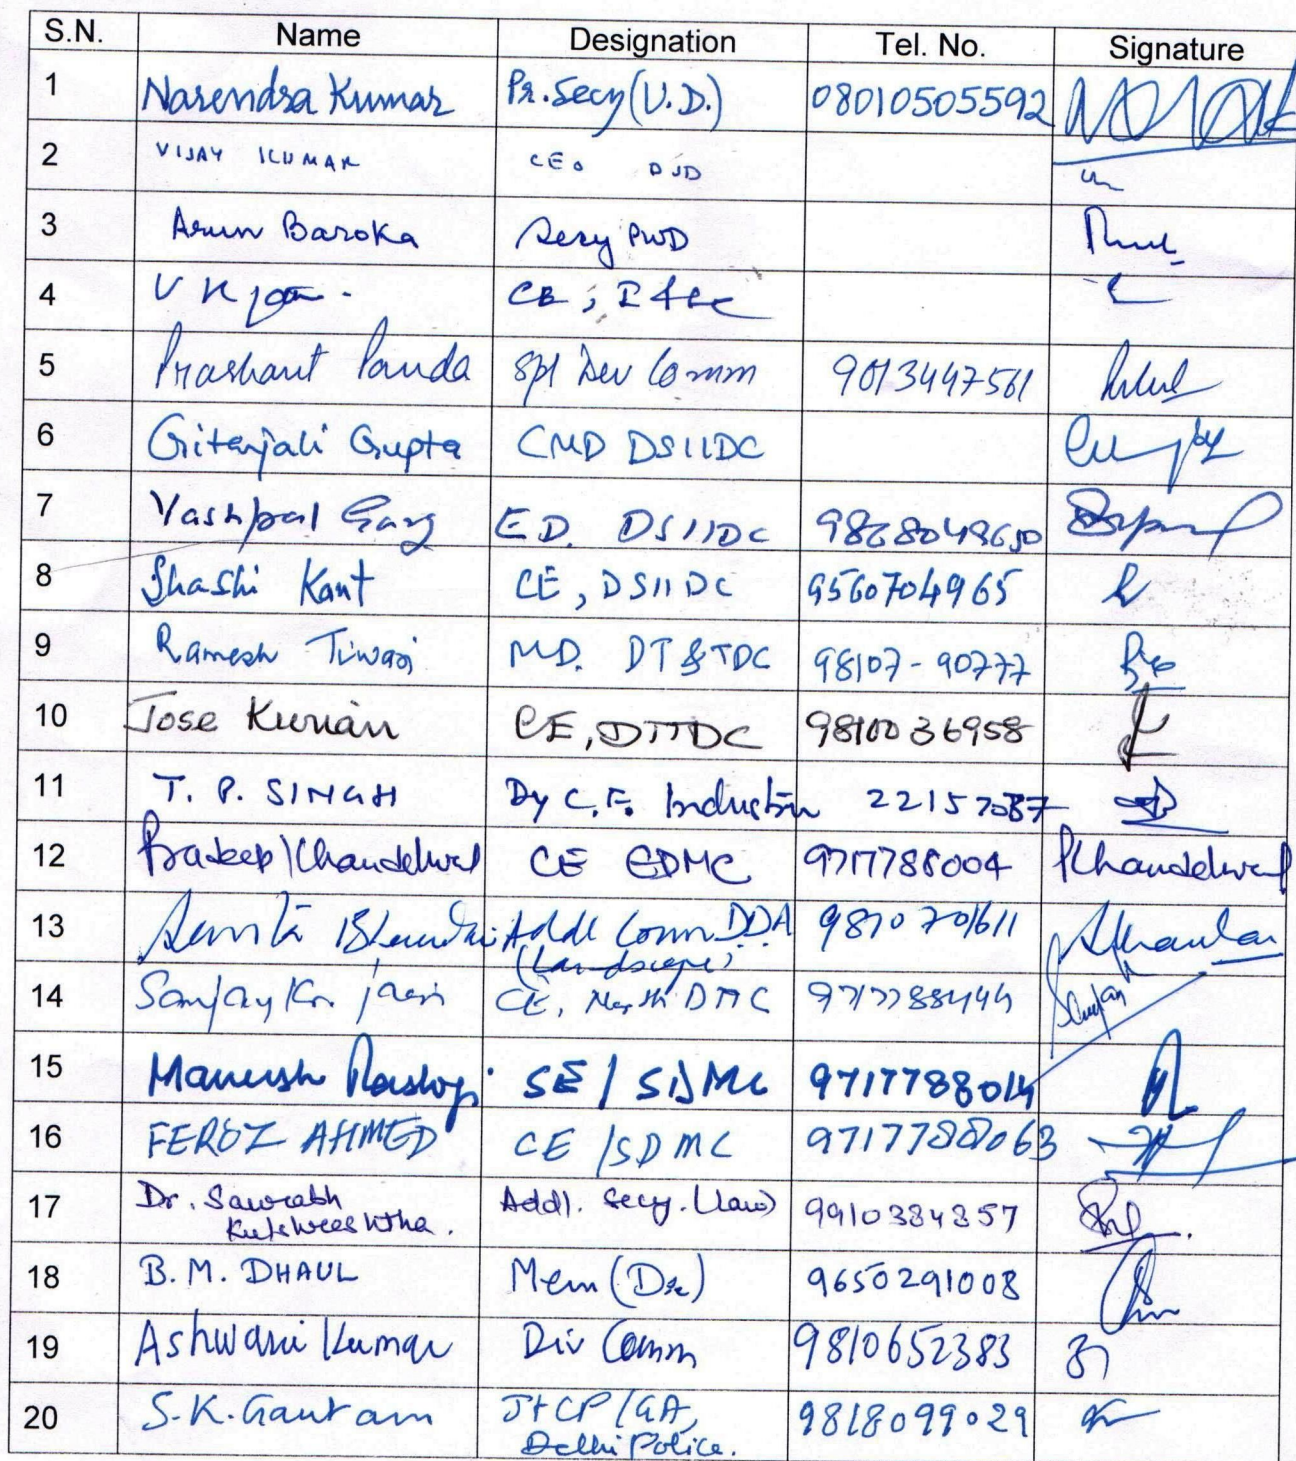 S.N. Name Designation Tel. No. Signature
1 Narendra Kumar Pr. Secy (U.D.) 08010505592
2 VIJAY KUMAR CEO DJB
3 Arun Baroka Secy PWD
4 V K Jain CE, I&FC
5 Prashant Panda Spl Dev Comm 9013447561
6 Gitanjali Gupta CMD DSIIDC
7 Yashpal Garg E.D. DSIIDC
8 Shashi Kant CE, DSIIDC 9560704965
9 Ramesh Tiwari M.D. DT&TDC 98107-90777
10 Jose Kurian CE, DTTDC 9810036958
11 T. P. SINGH Dy C.E. 22157037
12 Pradeep Khandelwal CE EDMC 9717788004 PKhandelwal
13 Addl Comm DDA 9810701611
(Landscape)
14 Sanjay Kr. Jain CE, North DMC 9717788444
15 Maneesh Rastogi SE / SDMC 9717788014
16 FEROZ AHMED CE / SDMC 9717788063
17 Dr. Saurabh Addl. Secy. (Law) 9910384357
Kulshreshtha.
18 B.M. DHAUL Mem (Dr) 9650291008
19 Ashwani Kumar Div Comm 9810652383
20 S.K. Gautam Jt CP/GA, 9818099029
Delhi Police.